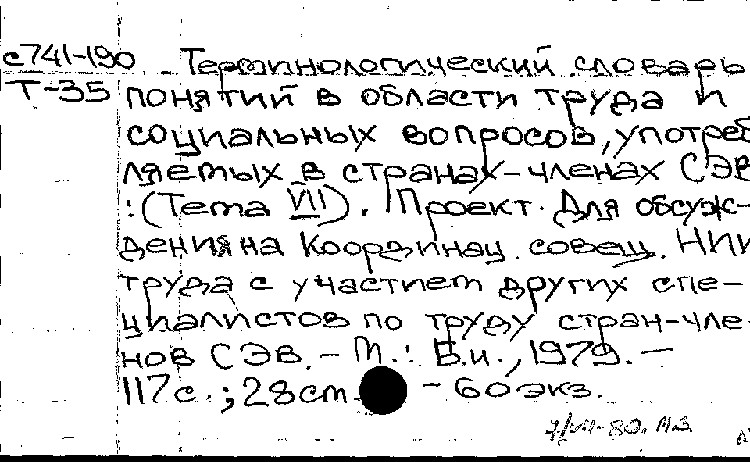 с741-190 Терминологический словарь
Т-35 понятий в области труда и
социальных вопросов, употреб
ляемых в странах-членах СЭВ
: (Тема VII). Проект. Для обсуж-
дения на Координац. совещ. НИИ
труда с участием других спе-
циалистов по труду стран-чле
нов СЭВ. – М.: Б.и., 1979. –
117с.; 28см – 60экз.
7/VII-80. М.З.